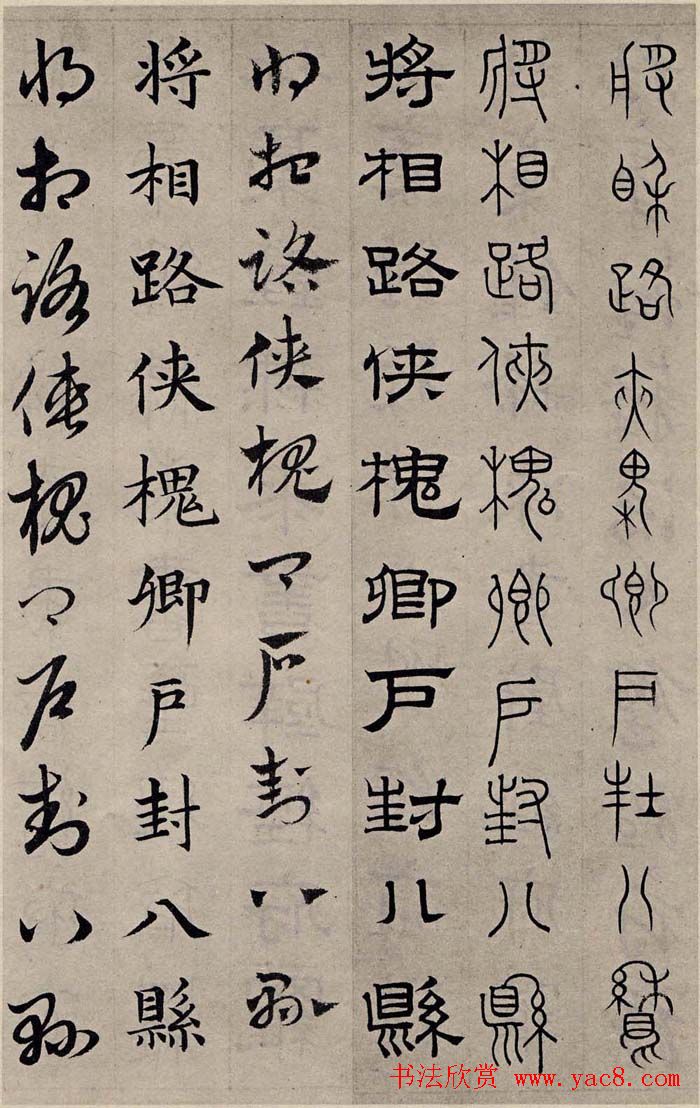 將相路俠槐卿戶封八縣
將相路俠槐卿戶封八縣
將相路侠槐卿戶封八縣
將相路侠槐卿戶封八縣
將相路侠槐卿戶封八縣
將相路侠槐卿戶封八縣
书法欣赏 www.yac8.com